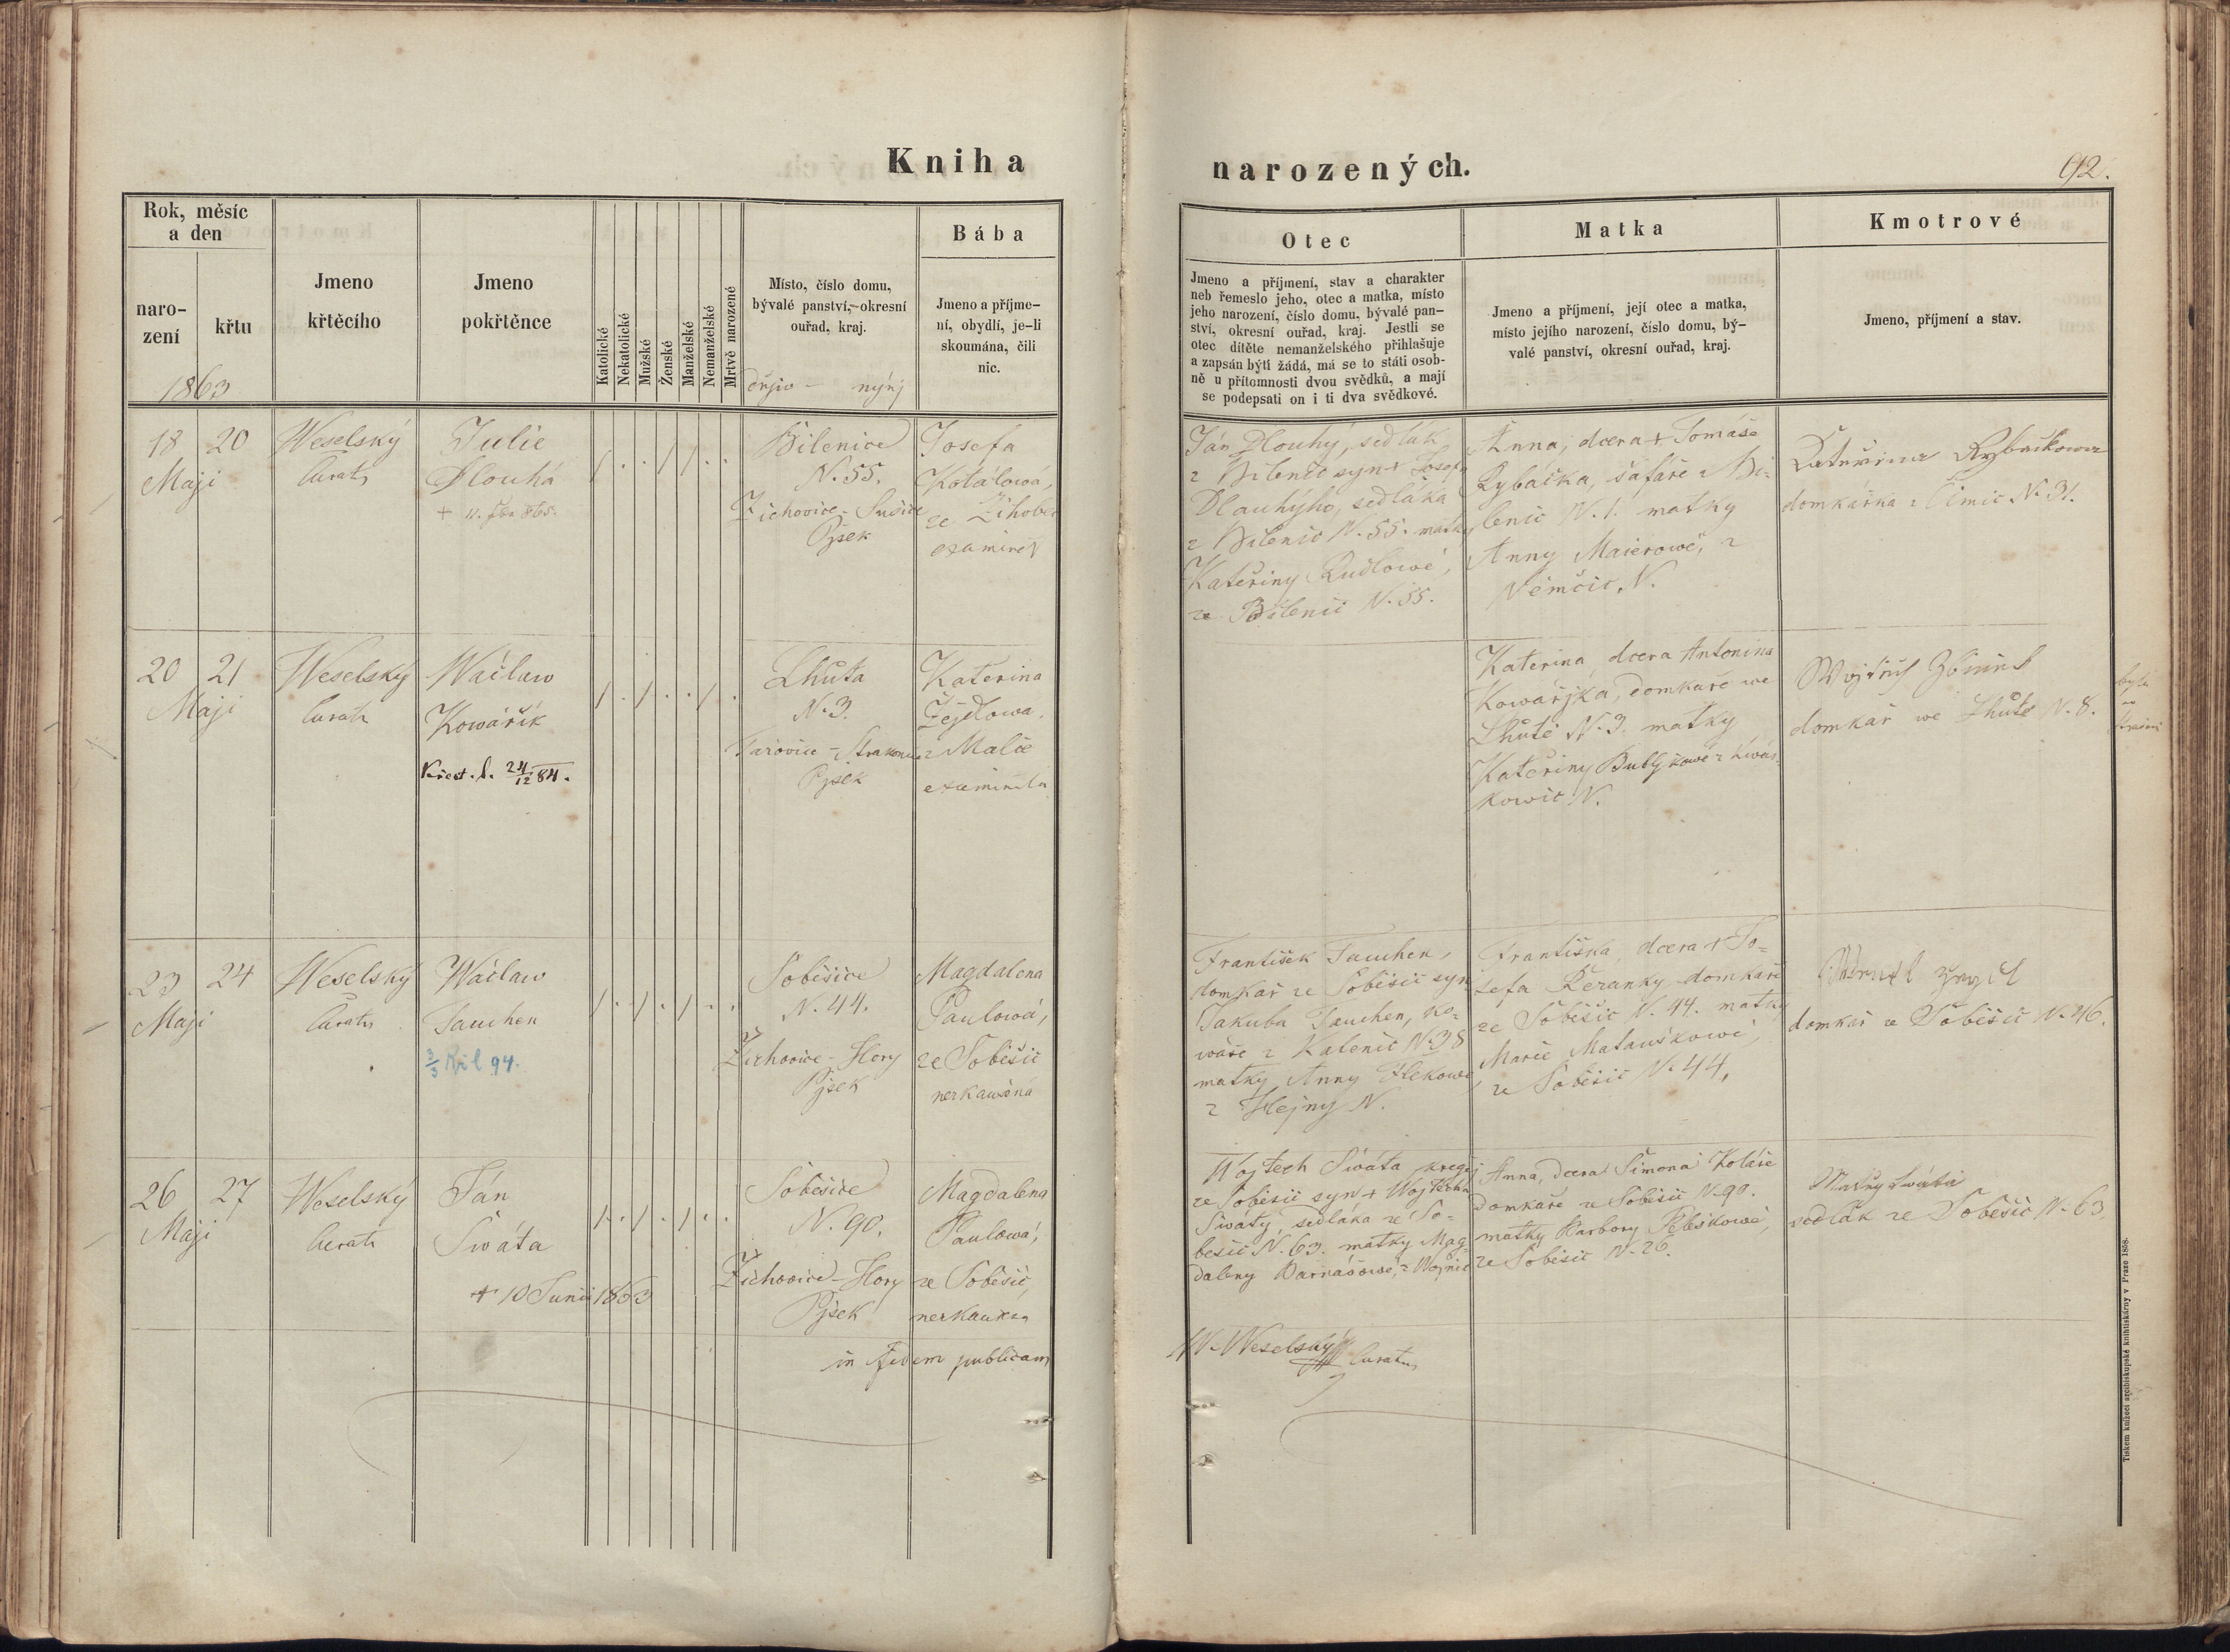 Kniha
narozených.
92.
Rok, měsíc
a den
naro-
zení
křtu
1863
Jmeno
křtěcího
Jmeno
pokřtěnce
Katolické
Nekatolické
Mužské
Ženské
Manželské
Nemanželské
Mrtvě narozené
Místo, číslo domu,
bývalé panství, okresní
ouřad, kraj.
nýnj
Bába
Jmeno a příjme-
ní, obydlí, je-li
skoumána, čili
nic.
Otec
Jmeno a příjmení, stav a charakter
neb řemeslo jeho, otec a matka, místo
jeho narození, číslo domu, bývalé pan-
ství, okresní ouřad, kraj. Jestli se
otec dítěte nemanželského přihlašuje
a zapsán býti žádá, má se to státi osob-
ně u přítomnosti dvou svědků, a mají
se podepsati on i ti dva svědkové.
Matka
Jmeno a příjmení, její otec a matka,
místo jejího narození, číslo domu, bý-
valé panství, okresní ouřad, kraj.
Kmotrové
Jmeno, příjmení a stav.
18 20
Maji
Weselský
Curatus
Julie
Dlouhá
Bilenice
N. 55.
Žichovice - Sušice
Pjsek
Josefa
Kotálowá,
ze Žihobec
Ján Dlouhý, sedlák
z Bilenic syn + Josefa
Dlouhýho, sedláka
z Bilenic N. 55. matky
Kateřiny Rudlowé,
ze Bilenic N. 55.
Anna, dcera + Tomáše
Rybačka, šafáře z Bi-
lenic N. 1. matky
Anny Maierowé, z
Němčic N.
Kateřina Rybačkowa
domkářka z Čimic N. 31.
20 21
Maji
Weselský
Curatus
Wáclaw
Kowářík
Křest. l. 24/12 84.
Lhůta
N. 3.
Pjsek
Kateřina
z Malče
Kateřina, dcera Antonina
Kowářjka, domkaře we
Lhůtě N. 3. matky
Kateřiny
kowic N.
domkař we Lhůtě N. 8.
23 24
Maji
Weselský
Curatus
Wáclaw
Tauchen
94.
Soběšice
N. 44.
Žichovice - Hory
Pjsek
Magdalena
Paulowá,
ze Soběšic
František Tauchen,
domkař ze Soběšic syn
Jakuba Tauchen, ko-
wáře z Kalenic N. 38
matky Anny
z Hejny N.
Františka, dcera + Jo-
sefa Beranky domkaře
ze Soběšic N. 44. matky
Marie Matauškowé,
ze Soběšic N. 44.
domkař ze Soběšic N. 46.
26 27
Maji
Weselský
Curatus
Ján
Swáta
+ 10 Junii 1863
Soběšice
N. 90.
Žichovice - Hory
Pjsek
Magdalena
Paulowá,
ze Soběšic,
Wojtech Swáta, kregčj
ze Soběšic syn + Wojtěcha
Swáty, sedláka ze So-
běšic N. 63. matky Mag-
daleny
Anna, dcera Šimona Koláře
domkaře ze Soběšic N. 90.
matky Barbory
ze Soběšic N. 26.
Matěj Swáta
sedlák ze Soběšic N. 63
in fidem publicam
W. Weselský
Curatus
Tiskem knížecí arcibiskupské knihtiskárny v Praze 1858.